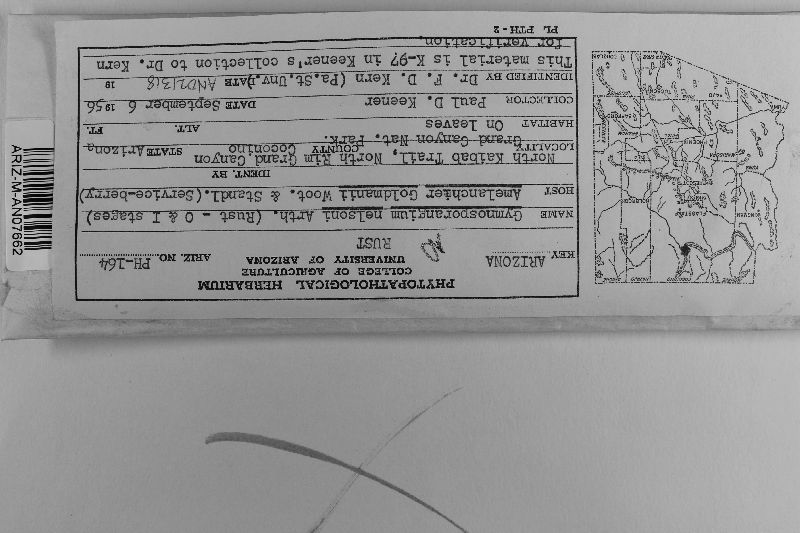 PHYTOPATHOLOGICAL HERBARIUM
COLLEGE OF AGRICULTURE
UNIVERSITY OF ARIZONA
KEY ARIZONA
ARIZ. NO. PH-164
RUST
NAME Gymnosporangium nelsoni Arth. (Rust - O & I stages)
HOST Amelanchier Goldmanii Woot. & Standl.(Service-berry)
IDENT. BY
North Kaibab Trail, North Rim Grand Canyon
LOCALITY COUNTY Coconino STATE Arizona
Grand Canyon Nat. Park.
HABITAT On leaves ALT. FT.
COLLECTOR Paul D. Keener DATE September 6 1956
IDENTIFIED BY Dr. F. D. Kern (Pa.St.Unv.) DATE 19
This material is K-97 in Keener's collection to Dr. Kern
for verification.
PL. PTH-2
ARIZ-M-AN07662